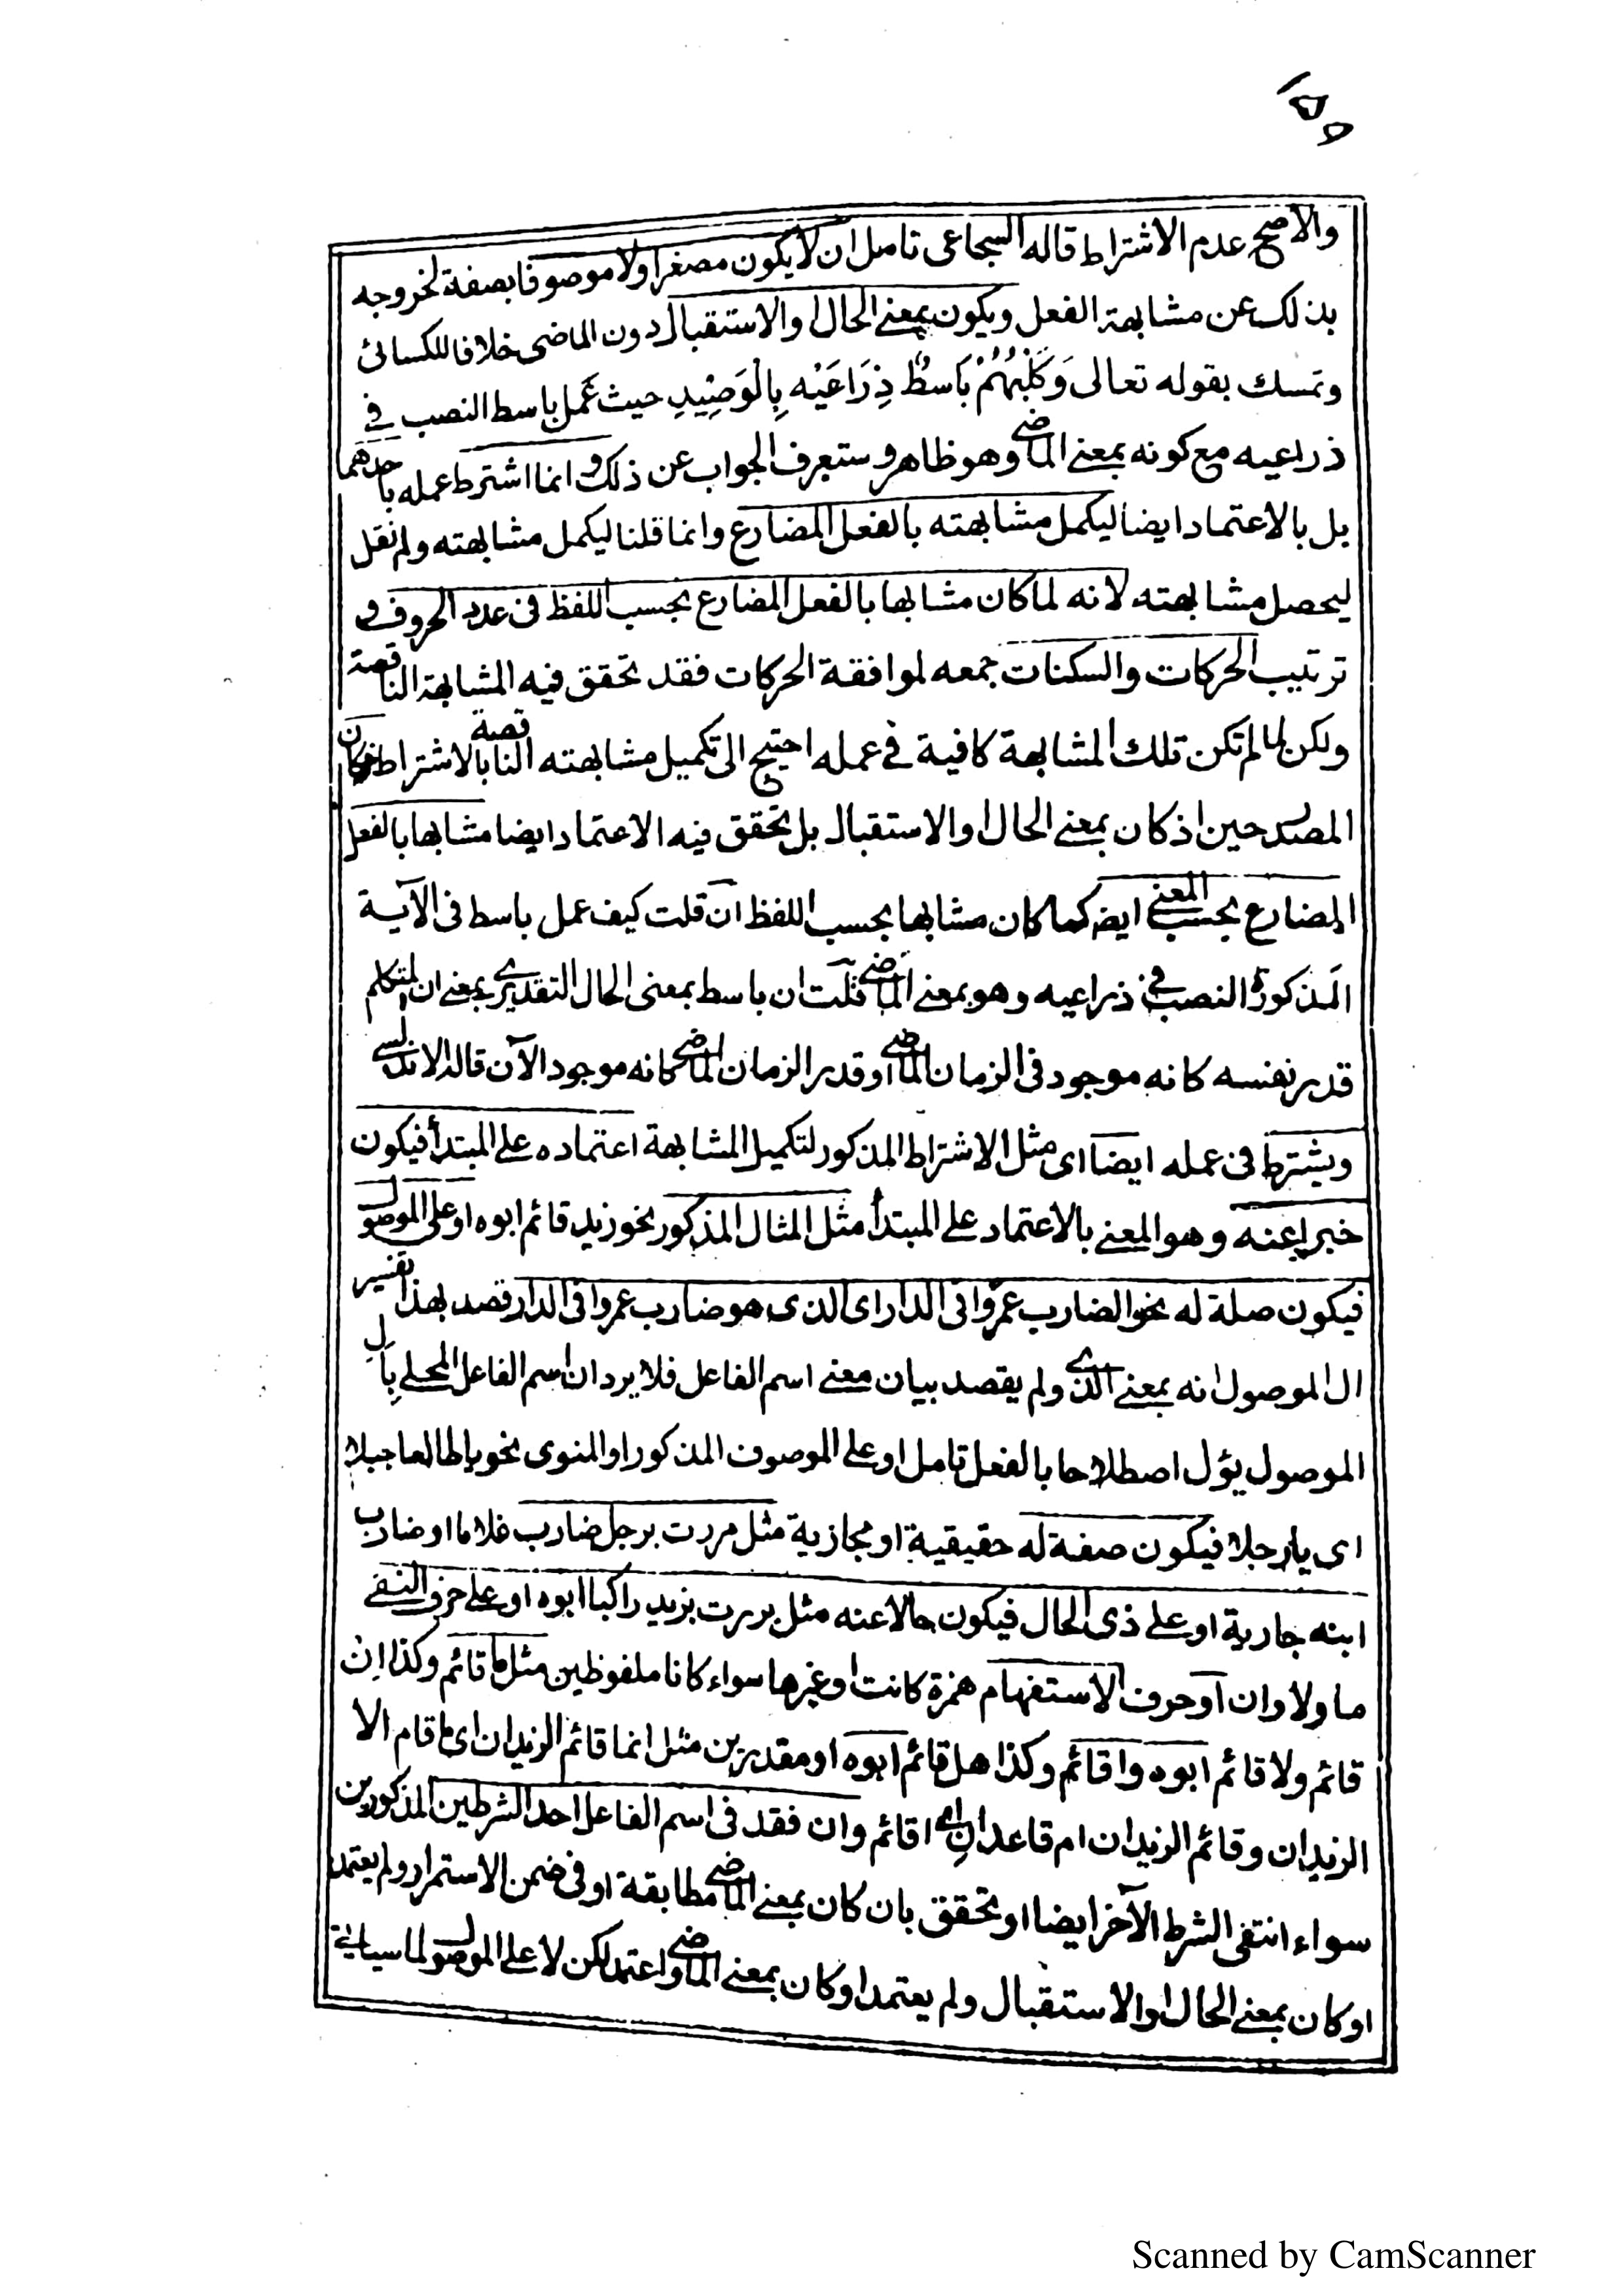 ١٥٥
والاصح عدم الاشتراط قاله السجاعى تامل ان لا يكون مصغرا ولا موصوفا بصفة لخروجه
بذلك عن مشابهة الفعل ويكون بمعنى الحال او الاستقبال دون الماضى خلافا للكسائى
وتمسك بقوله تعالى وَكَلْبُهُمْ بَاسِطٌ ذِرَاعَيْهِ بِالْوَصِيْدِ حيث عمل باسط النصب فى
ذراعيه مع كونه بمعنى الماضى وهو ظاهر وستعرف الجواب عن ذلك وانما اشترط عمله باحدهما
بل بالاعتماد ايضا ليكمل مشابهته بالفعل المضارع وانما قلنا ليكمل مشابهته ولم نقل
ليحصل مشابهته لانه لما كان مشابها بالفعل المضارع بحسب اللفظ فى عدد الحروف و
ترتيب الحركات والسكنات جمعه لموافقة الحركات فقد تحقق فيه المشابهة الناقصة
ولكن لما لم تكن تلك المشابهة كافية فى عمله احتيج الى تكميل مشابهته الناقصة بالاشتراط فكان
المصدر حين اذ كان بمعنى الحال او الاستقبال بل تحقق فيه الاعتماد ايضا مشابها بالفعل
المضارع بحسب المعنى ايض كما كان مشابها بحسب اللفظ ان قلت كيف عمل باسط فى الآية
المذكورة النصب فى ذراعيه وهو بمعنى الماضى قلت ان باسط بمعنى الحال التقديرى بمعنى ان المتكلم
قدر نفسه كانه موجود فى الزمان الماضى او قدر الزمان الماضى كانه موجود الآن قاله الاندلسى
ويشترط فى عمله ايضا اى مثل الاشتراط المذكور لتكميل المشابهة اعتماده على المبتدأ فيكون
خبرا عنه وهو المعنى بالاعتماد على المبتدأ مثل المثال المذكور نحو زيد قائم ابوه او على الموصول
فيكون صلة له نحو الضارب عمروا فى الدار اى الذى هو ضارب عمروا فى الدار قصد بهذا تفسير
ال الموصول انه بمعنى الذى ولم يقصد بيان معنى اسم الفاعل فلا يرد ان اسم الفاعل المحلى بِاَلِ
الموصول يؤل اصطلاحا بالفعل تامل او على الموصوف المذكور او المنوى نحو يا طالعا جبلا
اى يا رجلا فيكون صفة له حقيقية او مجازية مثل مررت برجل ضارب غلاما او ضارب
ابنه جارية او على ذى الحال فيكون حالا عنه مثل مررت بزيد راكبا ابوه او على حرف النفى
ما ولا وان او حرف الاستفهام همزة كانت او غيرها سواء كانا ملفوظين مثل ما قائم وكذا اِن
قائم ولا قائم ابوه وا قائم وكذا هل قائم ابوه او مقدرين مثل انما قائم الزيدان اى ما قام الا
الزيدان وقائم الزيدان ام قاعدانِ اى ا قائم وان فقد فى اسم الفاعل احد الشرطين المذكورين
سواء انتفى الشرط الآخر ايضا او تحقق بان كان بمعنى الماضى مطابقة او فى ضمن الاستمرار ولم يعتمد
او كان بمعنى الحال او الاستقبال ولم يعتمد او كان بمعنى الماضى واعتمد لكن لا على الموصول لما سياتى
Scanned by CamScanner